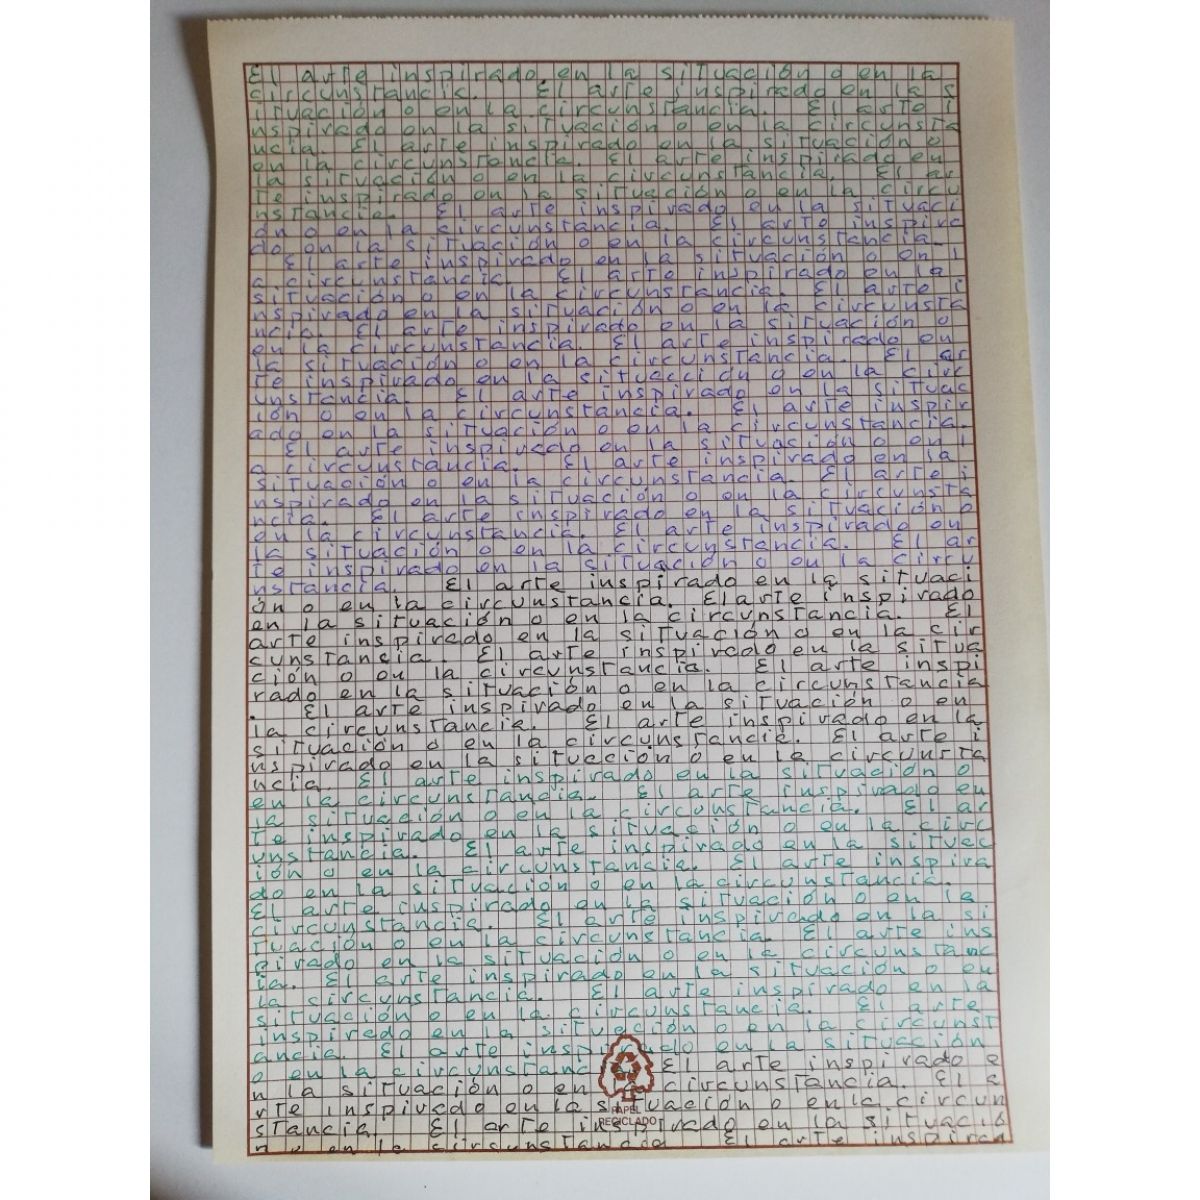 El arte inspirado en la situación o en la
circunstancia. El arte inspirado en la s
ituación o en la circunstancia. El arte i
nspirado en la situación o en la circunsta
ncia. El arte inspirado en la situación o
en la circunstancia. El arte inspirado en
la situación o en la circunstancia. El ar
te inspirado en la situación o en la circu
nstancia. El arte inspirado en la situaci
ón o en la circunstancia. El arte inspira
do en la situación o en la circunstancia.
El arte inspirado en la situación o en l
a circunstancia. El arte inspirado en la
situación o en la circunstancia. El arte i
nspirado en la situación o en la circunsta
ncia. El arte inspirado en la situación o
en la circunstancia. El arte inspirado en
la situación o en la circunstancia. El ar
te inspirado en la situación o en la circ
unstancia. El arte inspirado en la situac
ión o en la circunstancia. El arte inspir
ado en la situación o en la circunstancia.
El arte inspirado en la situación o en l
a circunstancia. El arte inspirado en la
situación o en la circunstancia. El arte i
nspirado en la situación o en la circunsta
ncia. El arte inspirado en la situación o
en la circunstancia. El arte inspirado en
la situación o en la circunstancia. El ar
te inspirado en la situación o en la circu
nstancia. El arte inspirado en la situaci
ón o en la circunstancia. El arte inspirado
en la situación o en la circunstancia. El
arte inspirado en la situación o en la cir
cunstancia. El arte inspirado en la situa
ción o en la circunstancia. El arte inspi
rado en la situación o en la circunstancia
. El arte inspirado en la situación o en
la circunstancia. El arte inspirado en la
situación o en la circunstancia. El arte i
nspirado en la situación o en la circunsta
ncia. El arte inspirado en la situación o
en la circunstancia. El arte inspirado en
la situación o en la circunstancia. El ar
te inspirado en la situación o en la circ
unstancia. El arte inspirado en la situac
ión o en la circunstancia. El arte inspira
do en la situación o en la circunstancia.
El arte inspirado en la situación o en la
circunstancia. El arte inspirado en la si
tuación o en la circunstancia. El arte ins
pirado en la situación o en la circunstanc
ia. El arte inspirado en la situación o en
la circunstancia. El arte inspirado en la
situación o en la circunstancia. El arte
inspirado en la situación o en la circunst
ancia. El arte inspirado en la situación
o en la circunstancia. El arte inspirado e
n la situación o en la circunstancia. El a
rte inspirado en la situación o en la circun
stancia. El arte inspirado en la situació
n o en la circunstancia. El arte inspira
PAPEL
RECICLADO